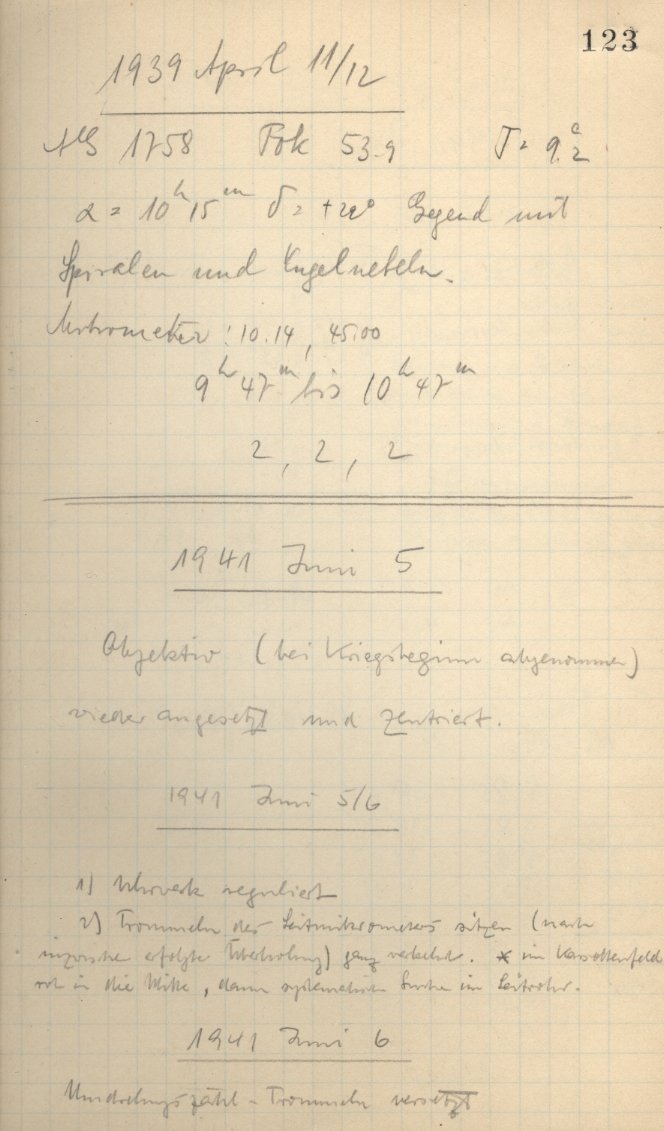 123
1939 April 11/12
1758 Fok 53.9 T = 9.°2
α = 10h 15m δ = +22° Gegend mit
Spiralen und Kugelnebeln.
Mikrometer: 10.14, 45.00
9h 47m bis 10h 47m
2, 2, 2
1941 Juni 5
Objektiv (bei Kriegsbeginn abgenommen)
wieder angesetzt und zentriert.
1941 Juni 5/6
1) Uhrwerk reguliert
2) Trommeln des Leitmikrometers sitzen (nach
inzwischen erfolgter Überholung) ganz verkehrt. * im Kassettenfeld
in die Mitte, dann systematische Suche im Leitrohr.
1941 Juni 6
Umdrehungszähl-Trommeln versetzt